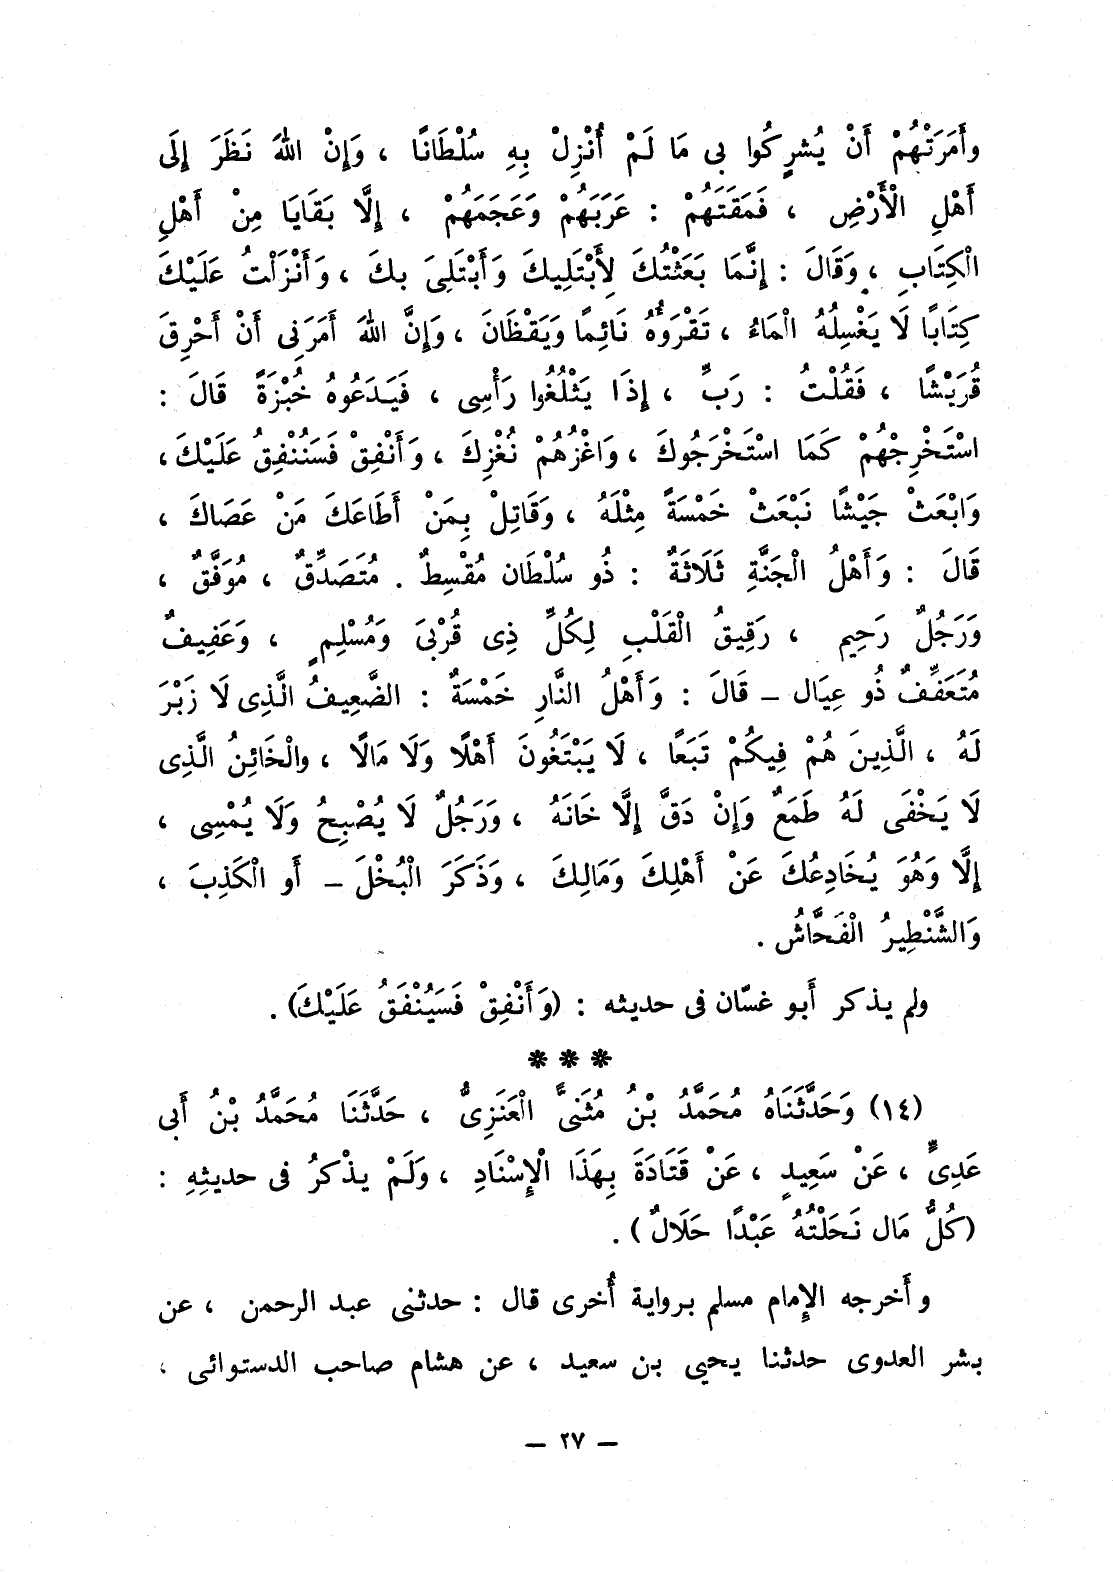 وَأَمَرَتْهُمْ أَنْ يُشرِكُوا بِى مَا لَمْ أُنْزِلْ بِهِ سُلْطَانًا ، وَإِنْ اللهَ نَظَرَ إِلَى
أَهْلِ الْأَرْضِ ، فَمَقَتَهُمْ : عَرَبَهُمْ وَعَجَمَهُمْ ، إِلَّا بَقَايَا مِنْ أَهْلِ
الْكِتَابِ ، وَقَالَ : إِنَّمَا بَعَثْتُكَ لِأَبْتَلِيكَ وَأَبْتَلِىَ بكَ ، وَأَنْزَلْتُ عَلَيْكَ
كِتَابًا لَا يَغْسِلُهُ الْمَاءُ ، تَقْرَؤُهُ نَائِمًا وَيَقْظَانَ ، وَإِنَّ اللهَ أَمَرَنِى أَنْ أَحْرِقَ
قُرَيْشًا ، فَقُلْتُ : رَبِّ ، إِذَا يَثْلُغُوا رَأْسِى ، فَيَدَعُوهُ خُبْزَةً قَالَ :
اسْتَخْرِجْهُمْ كَمَا اسْتَخْرَجُوكَ ، وَاغْزُهُمْ نُغْزِكَ ، وَأَنْفِقْ فَسَنُنْفِقُ عَلَيْكَ ،
وَابْعَثْ جَيْشًا نَبْعَثْ خَمْسَةً مِثْلَهُ ، وَقَاتِلْ بِمَنْ أَطَاعَكَ مَنْ عَصَاكَ ،
قَالَ : وَأَهْلُ الْجَنَّةِ ثَلَاثَةٌ : ذُو سُلْطَان مُقْسِطٌ . مُتَصَدِّقٌ ، مُوَفَّقٌ ،
وَرَجُلٌ رَحِيم ، رَقِيقُ الْقَلْبِ لِكُلِّ ذِى قُرْبَى وَمُسْلِمٍ ، وَعَفِيفٌ
مُتَعَفِّفٌ ذُو عِيَال – قَالَ : وَأَهْلُ النَّارِ خَمْسَةٌ : الضَّعِيفُ الَّذِى لَا زَبْرَ
لَهُ ، الَّذِينَ هُمْ فِيكُمْ تَبَعًا ، لَا يَبْتَغُونَ أَهْلًا وَلَا مَالًا ، والْخَائِنُ الَّذِى
لَا يَخْفَى لَهُ طَمَعٌ وَإِنْ دَقَّ إِلَّا خَانَهُ ، وَرَجُلٌ لَا يُصْبِحُ وَلَا يُمْسِى ،
إِلَّا وَهُوَ يُخَادِعُكَ عَنْ أَهْلِكَ وَمَالِكَ ، وَذَكَرَ الْبُخْلَ – أَو الْكَذِبَ ،
وَالشَّنْظِيرُ الْفَحَّاشُ .
ولم يذكر أَبو غسّان فى حديثه : (وَأَنْفِقْ فَسَيُنْفَقُ عَلَيْكَ) .
*** 
(١٤) وَحَدَّثَنَاهُ مُحَمَّدُ بْنُ مُثَنىًّ الْعَنَزِىُّ ، حَدَّثَنَا مُحَمَّدُ بْنُ أَبى
عَدِىٍّ ، عَنْ سَعِيدٍ ، عَنْ قَتَادَةَ بِهَذَا الْإِسْنَادِ ، وَلَمْ يذْكرُ فى حديثِهِ :
(كُلُّ مَال نَحَلْتُهُ عَبْدًا حَلَالٌ ) .
وأَخرجه الإِمام مسلم برواية أُخرى قال : حدثنى عبد الرحمن ، عن
بشر العدوى حدثنا يحيى بن سعيد ، عن هشام صاحب الدستوائى ،
— ٢٧ —